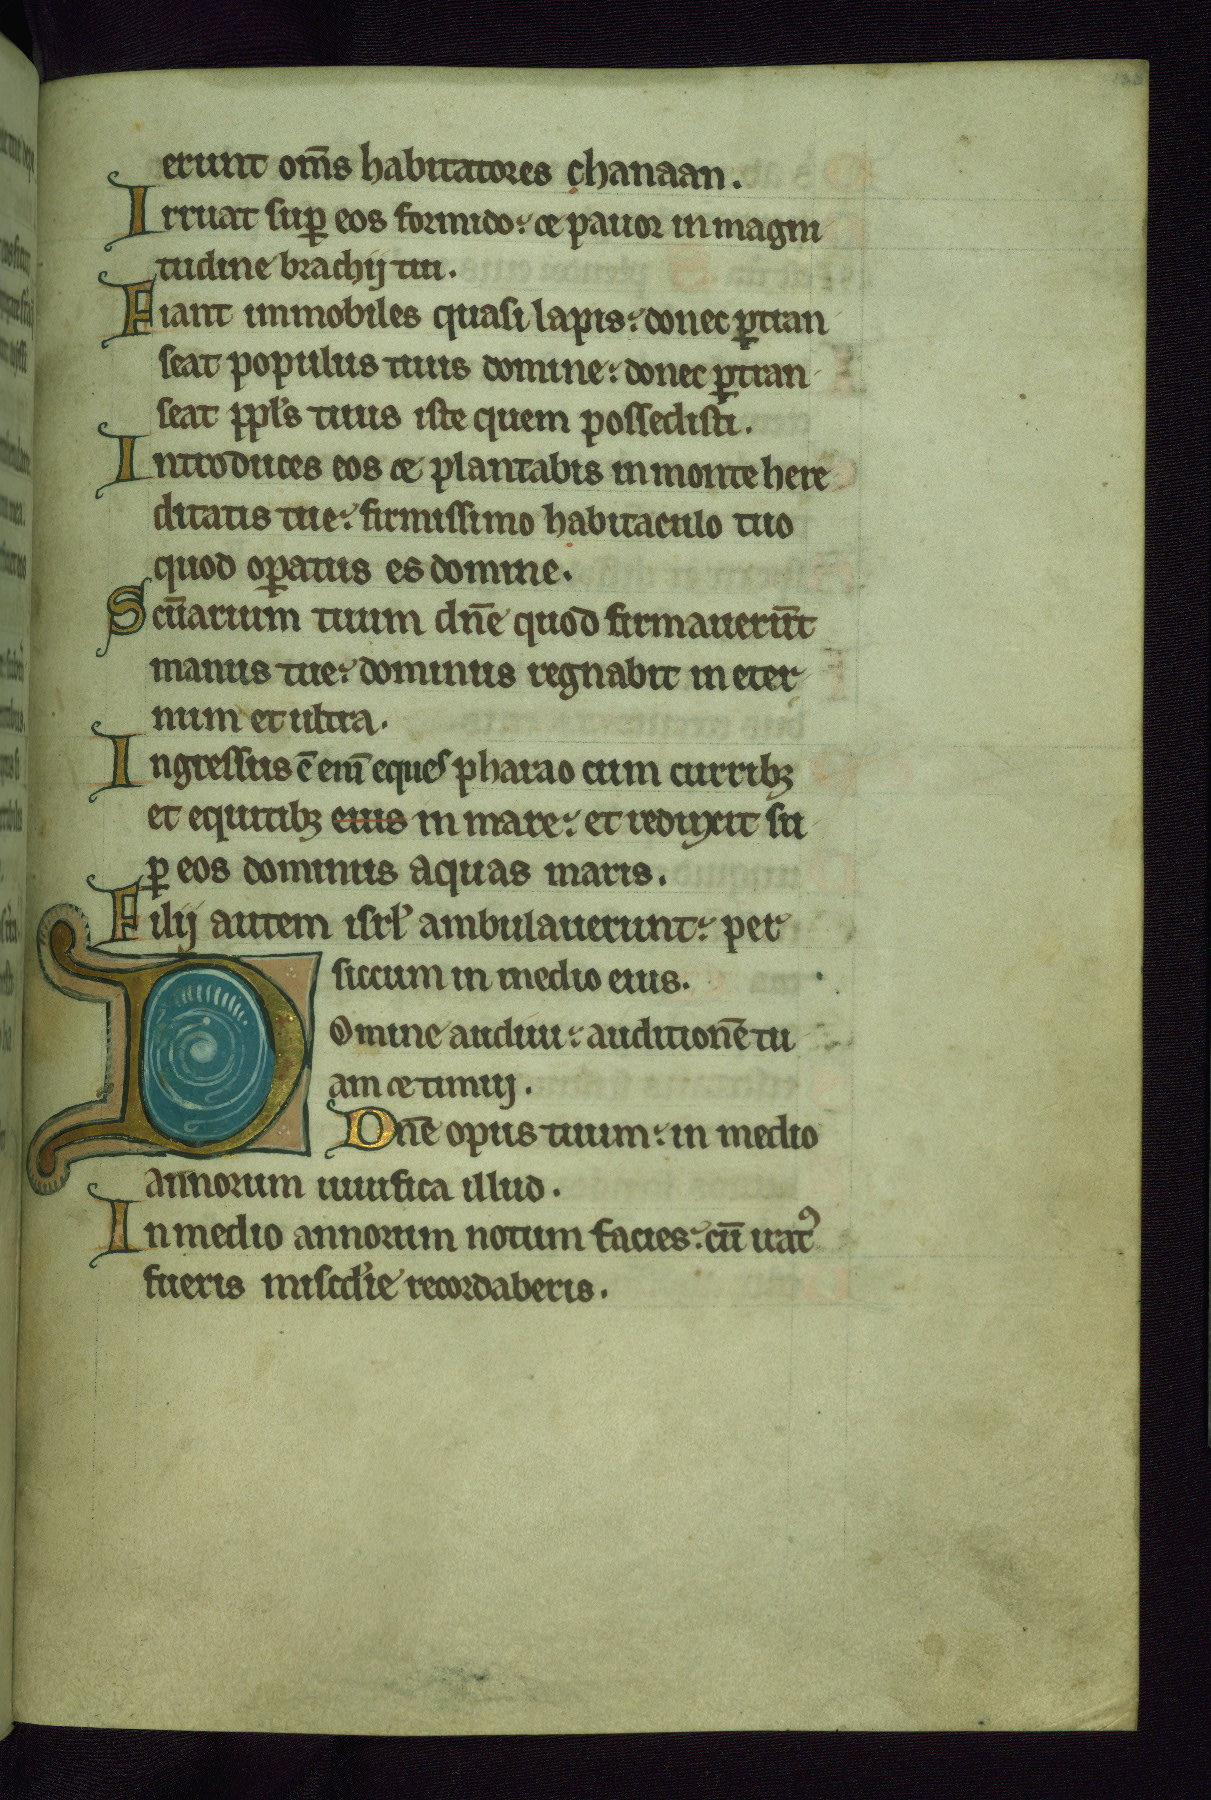 erunt om̄s habitatores chanaan.
Irruat sup̱ eos formido: ⁊ pauor in magni
tudine brachij tui.
Fiant immobiles quasi lapis: donec p̱tran
seat populus tuus domine: donec p̱tran
seat ppl̄s tuus iste quem possedisti.
Introduces eos ⁊ plantabis in monte here
ditatis tue: firmissimo habitaculo tuo
quod op̱atus es domine.
Sc̄uarium tuum dn̄e quod firmauerūt
manus tue: dominus regnabit in eter
num et ultra.
Ingressus ē eni᷒ eques pharao cum curribꝫ
et equitibꝫ eius in mare: et reduxit su
p̱ eos dominus aquas maris.
Filij autem isrl̄ ambulauerunt: per
siccum in medio eius.
Domine audiui: auditionē tu
am ⁊ timuij.
Dn̄e opus tuum: in medio
annorum uiuifica illud.
In medio annorum notum facies: cū irat᷒
fueris misc̄d'ie recordaberis.